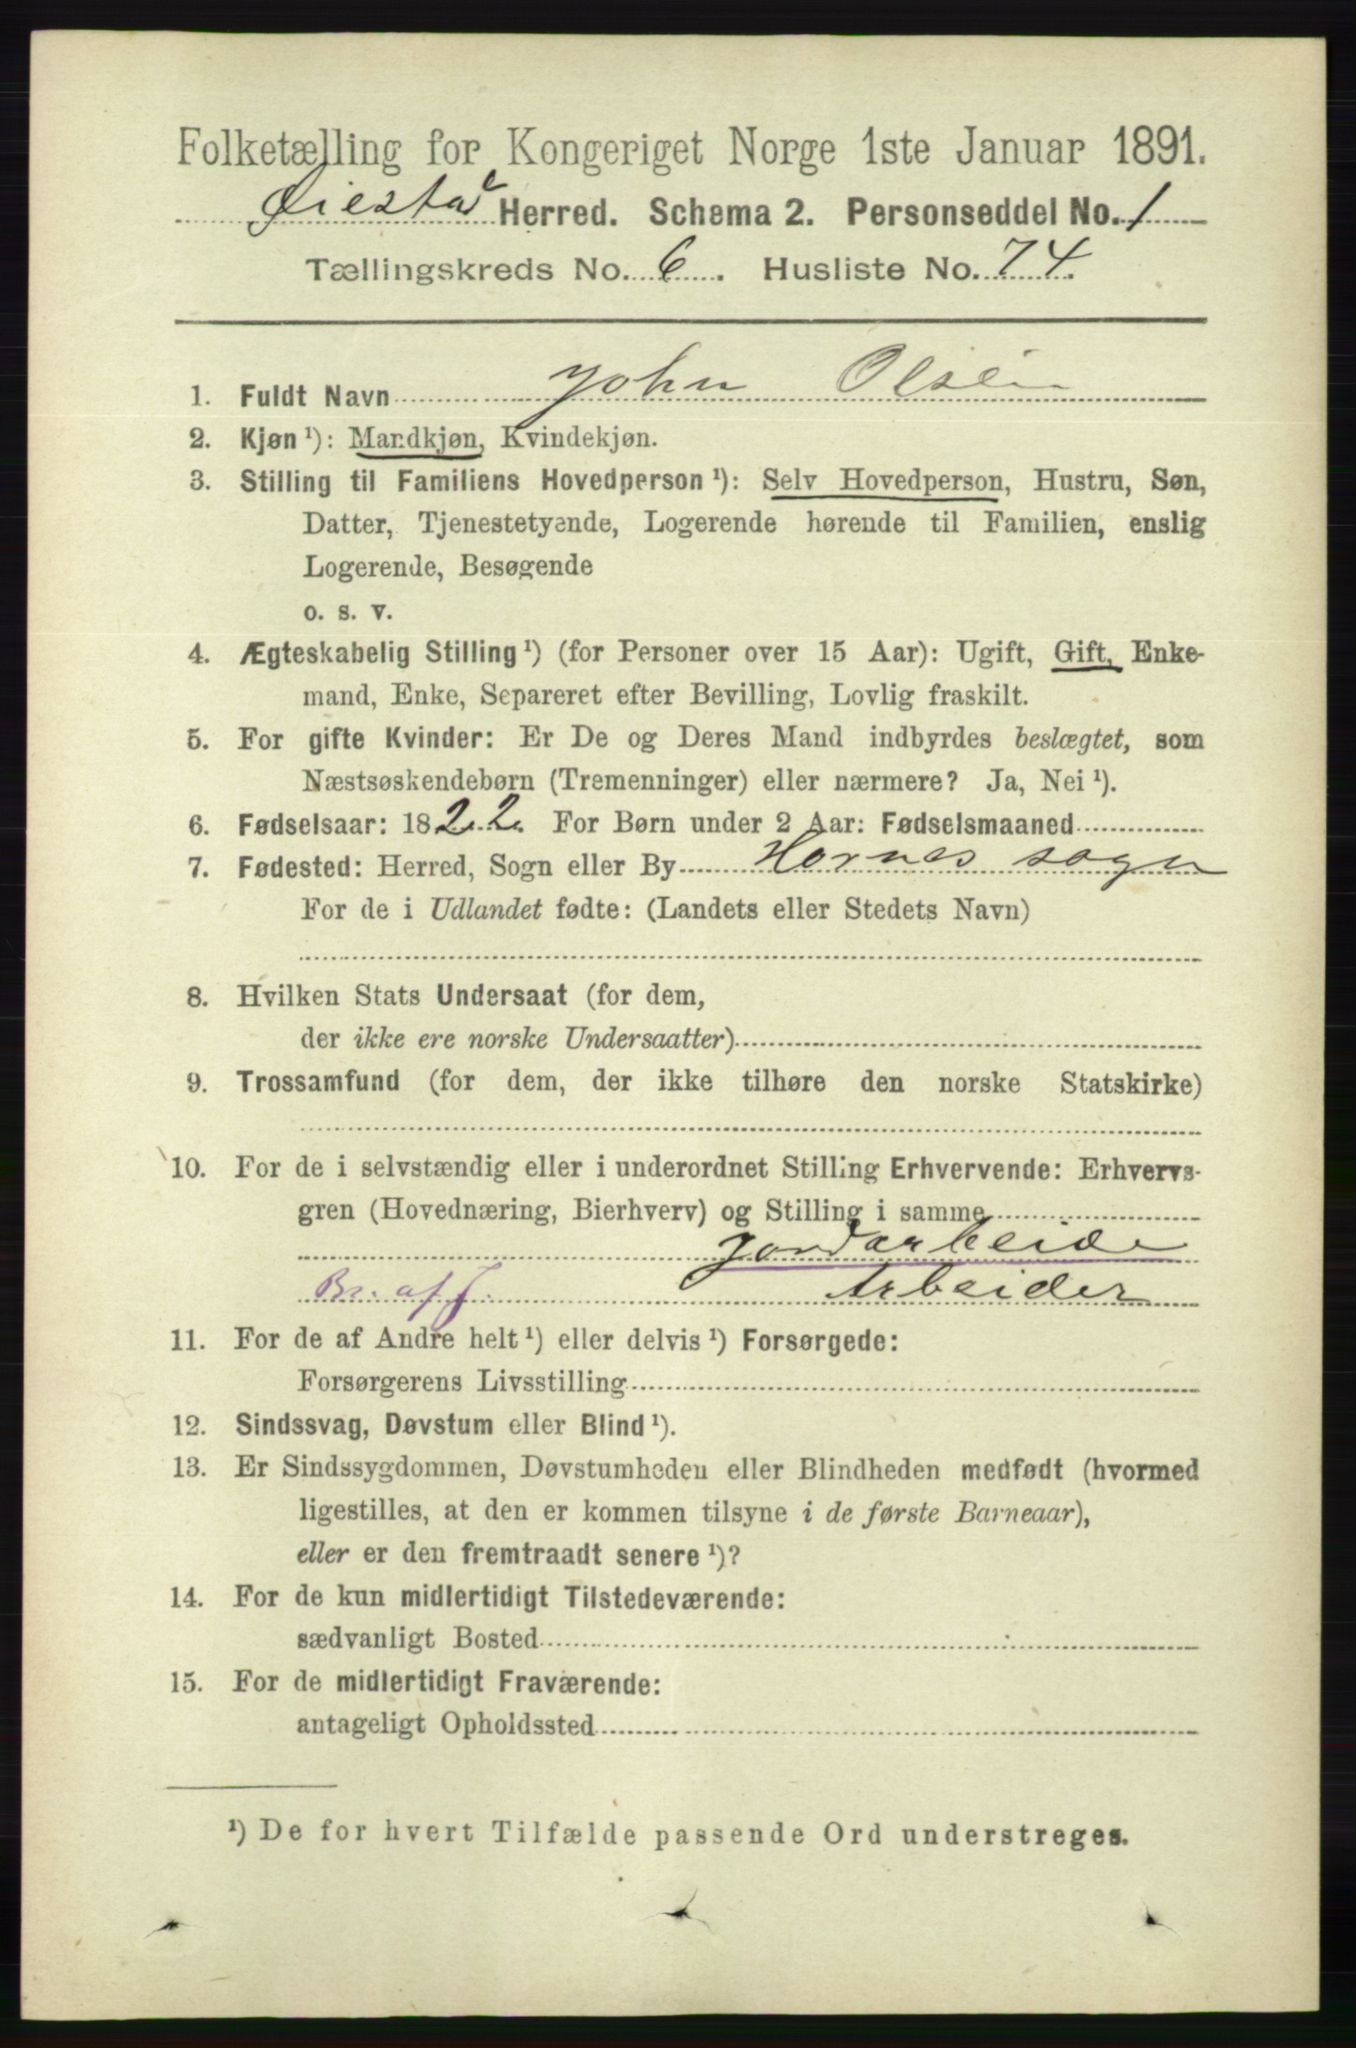 Folketælling for Kongeriget Norge 1ste Januar 1891.
Øiestad Herred. Schema 2. Personseddel No. 1
Tællingskreds No. 6. Husliste No. 74.
1. Fuldt Navn John Olsen
2. Kjøn ¹): Mandkjøn, Kvindekjøn.
3. Stilling til Familiens Hovedperson ¹): Selv Hovedperson, Hustru, Søn,
Datter, Tjenestetyende, Logerende hørende til Familien, enslig
Logerende, Besøgende
o. s. v.
4. Ægteskabelig Stilling ¹) (for Personer over 15 Aar): Ugift, Gift, Enke-
mand, Enke, Separeret efter Bevilling, Lovlig fraskilt.
5. For gifte Kvinder: Er De og Deres Mand indbyrdes beslægtet, som
Næstsøskendebørn (Tremenninger) eller nærmere? Ja, Nei ¹).
6. Fødselsaar: 1822. For Børn under 2 Aar: Fødselsmaaned
7. Fødested: Herred, Sogn eller By Hornes sogn
For de i Udlandet fødte: (Landets eller Stedets Navn)
8. Hvilken Stats Undersaat (for dem,
der ikke ere norske Undersaatter)
9. Trossamfund (for dem, der ikke tilhøre den norske Statskirke)
10. For de i selvstændig eller i underordnet Stilling Erhvervende: Erhvervs-
gren (Hovednæring, Bierhverv) og Stilling i samme
Jordarbeide
Br. af J. Arbeider
11. For de af Andre helt ¹) eller delvis ¹) Forsørgede:
Forsørgerens Livsstilling
12. Sindssvag, Døvstum eller Blind ¹).
13. Er Sindssygdommen, Døvstumheden eller Blindheden medfødt (hvormed
ligestilles, at den er kommen tilsyne i de første Barneaar),
eller er den fremtraadt senere ¹)?
14. For de kun midlertidigt Tilstedeværende:
sædvanligt Bosted
15. For de midlertidigt Fraværende:
antageligt Opholdssted
¹) De for hvert Tilfælde passende Ord understreges.